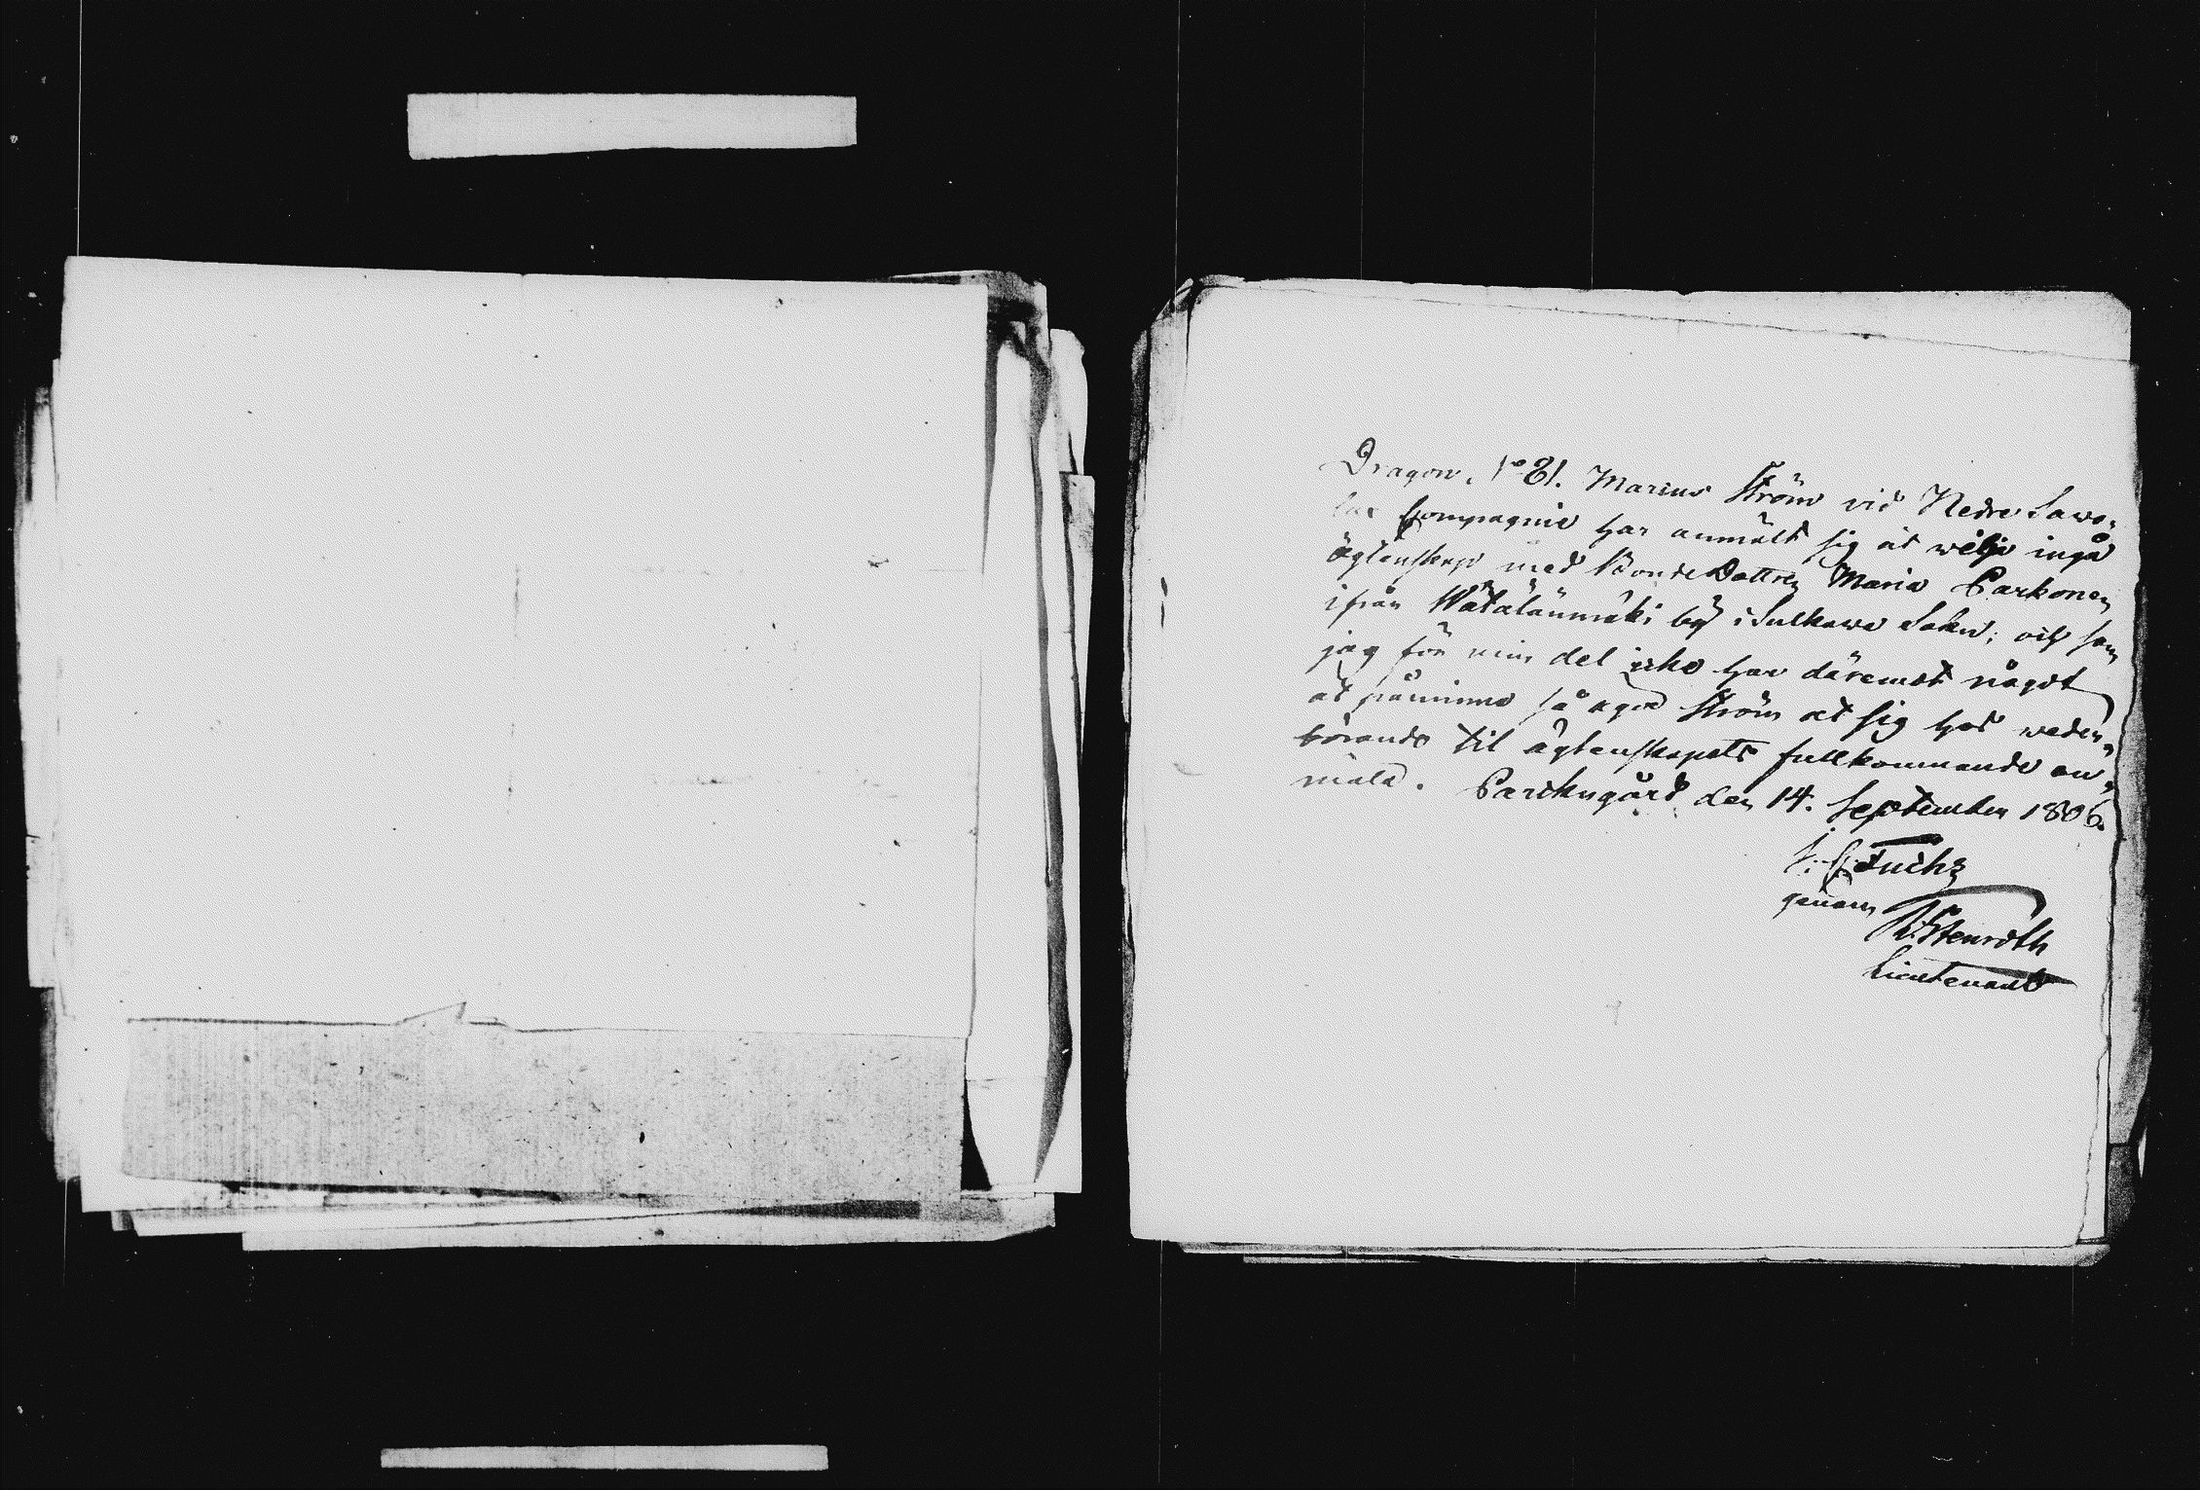 Dragon. No 81. Marius Ström vid Nedre Sawo=
lax Compagnie har anmält sig at wilja ingå
ägtenskap med BondeDottren Maria Parkonen
ifrån Wätälänmäki by i Sulkawa Sokn; och som
jag för min del icke har däremot något
at påminna så äger Ström at sig hos weder=
börande til ägtenskapets fullkomnande an=
mäla. den 14. September 1806.
Fuchs
genom
Stenroth
Lieutenant